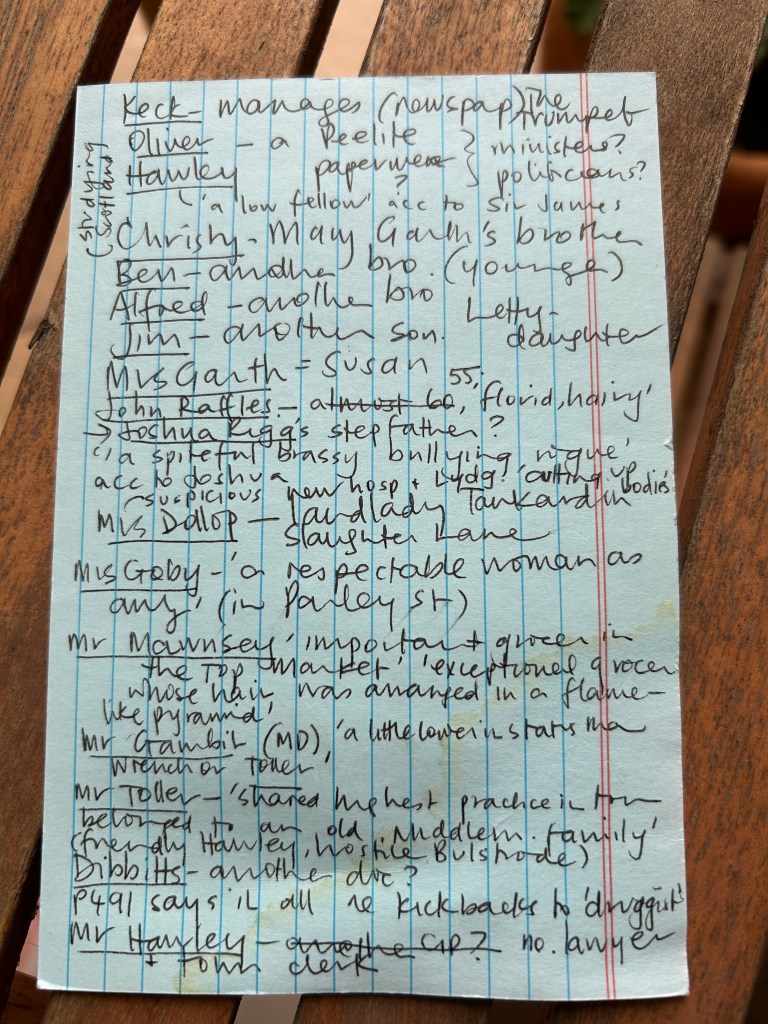 Keck - manages (newspap) The Trumpet
Oliver - a Peelite } ministers?
Hawley paper } politicians?
?
'a low fellow' acc to Sir James
(studying Scotland)
Christy - Mary Garth's brother
Ben - another bro. (younge)
Alfred - another bro
Letty - daughter
Jim - another son.
Mrs Garth = Susan
55,
John Raffles - almost 60, florid, hairy'
→ Joshua Rigg's stepfather?
'a spiteful brassy bullying rogue'
acc to Joshua
suspicious new hosp + Lydg. 'cutting up bodies'
Mrs Dollop - landlady Tankard in
Slaughter Lane
Mrs Goby - 'a respectable woman as
any' (in Parley St)
Mr Mawmsey 'important grocer in
the Top Market' 'exceptional grocer
whose hair was arranged in a flame-
like pyramid'
Mr Gambit (MD), 'a little lower in status tha
Wrench or Toller'
Mr Toller - 'shared highest practice in town
belonged to an old Middlem. family'
(friendly Hawley, hostile Bulstrode)
Dibbitts - another doc?
P491 says it all re kickbacks to 'druggists'
Mr Hawley - another GP? no. lawyer
+ Town clerk